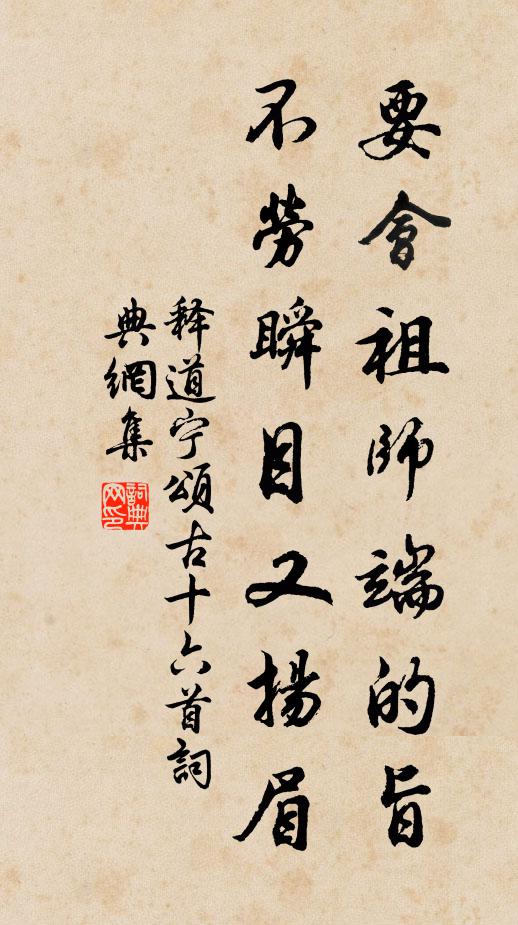 要會祖師端的旨
不勞瞬目又揚眉
释道宁頌古十六首詞
典網集
詞典网印